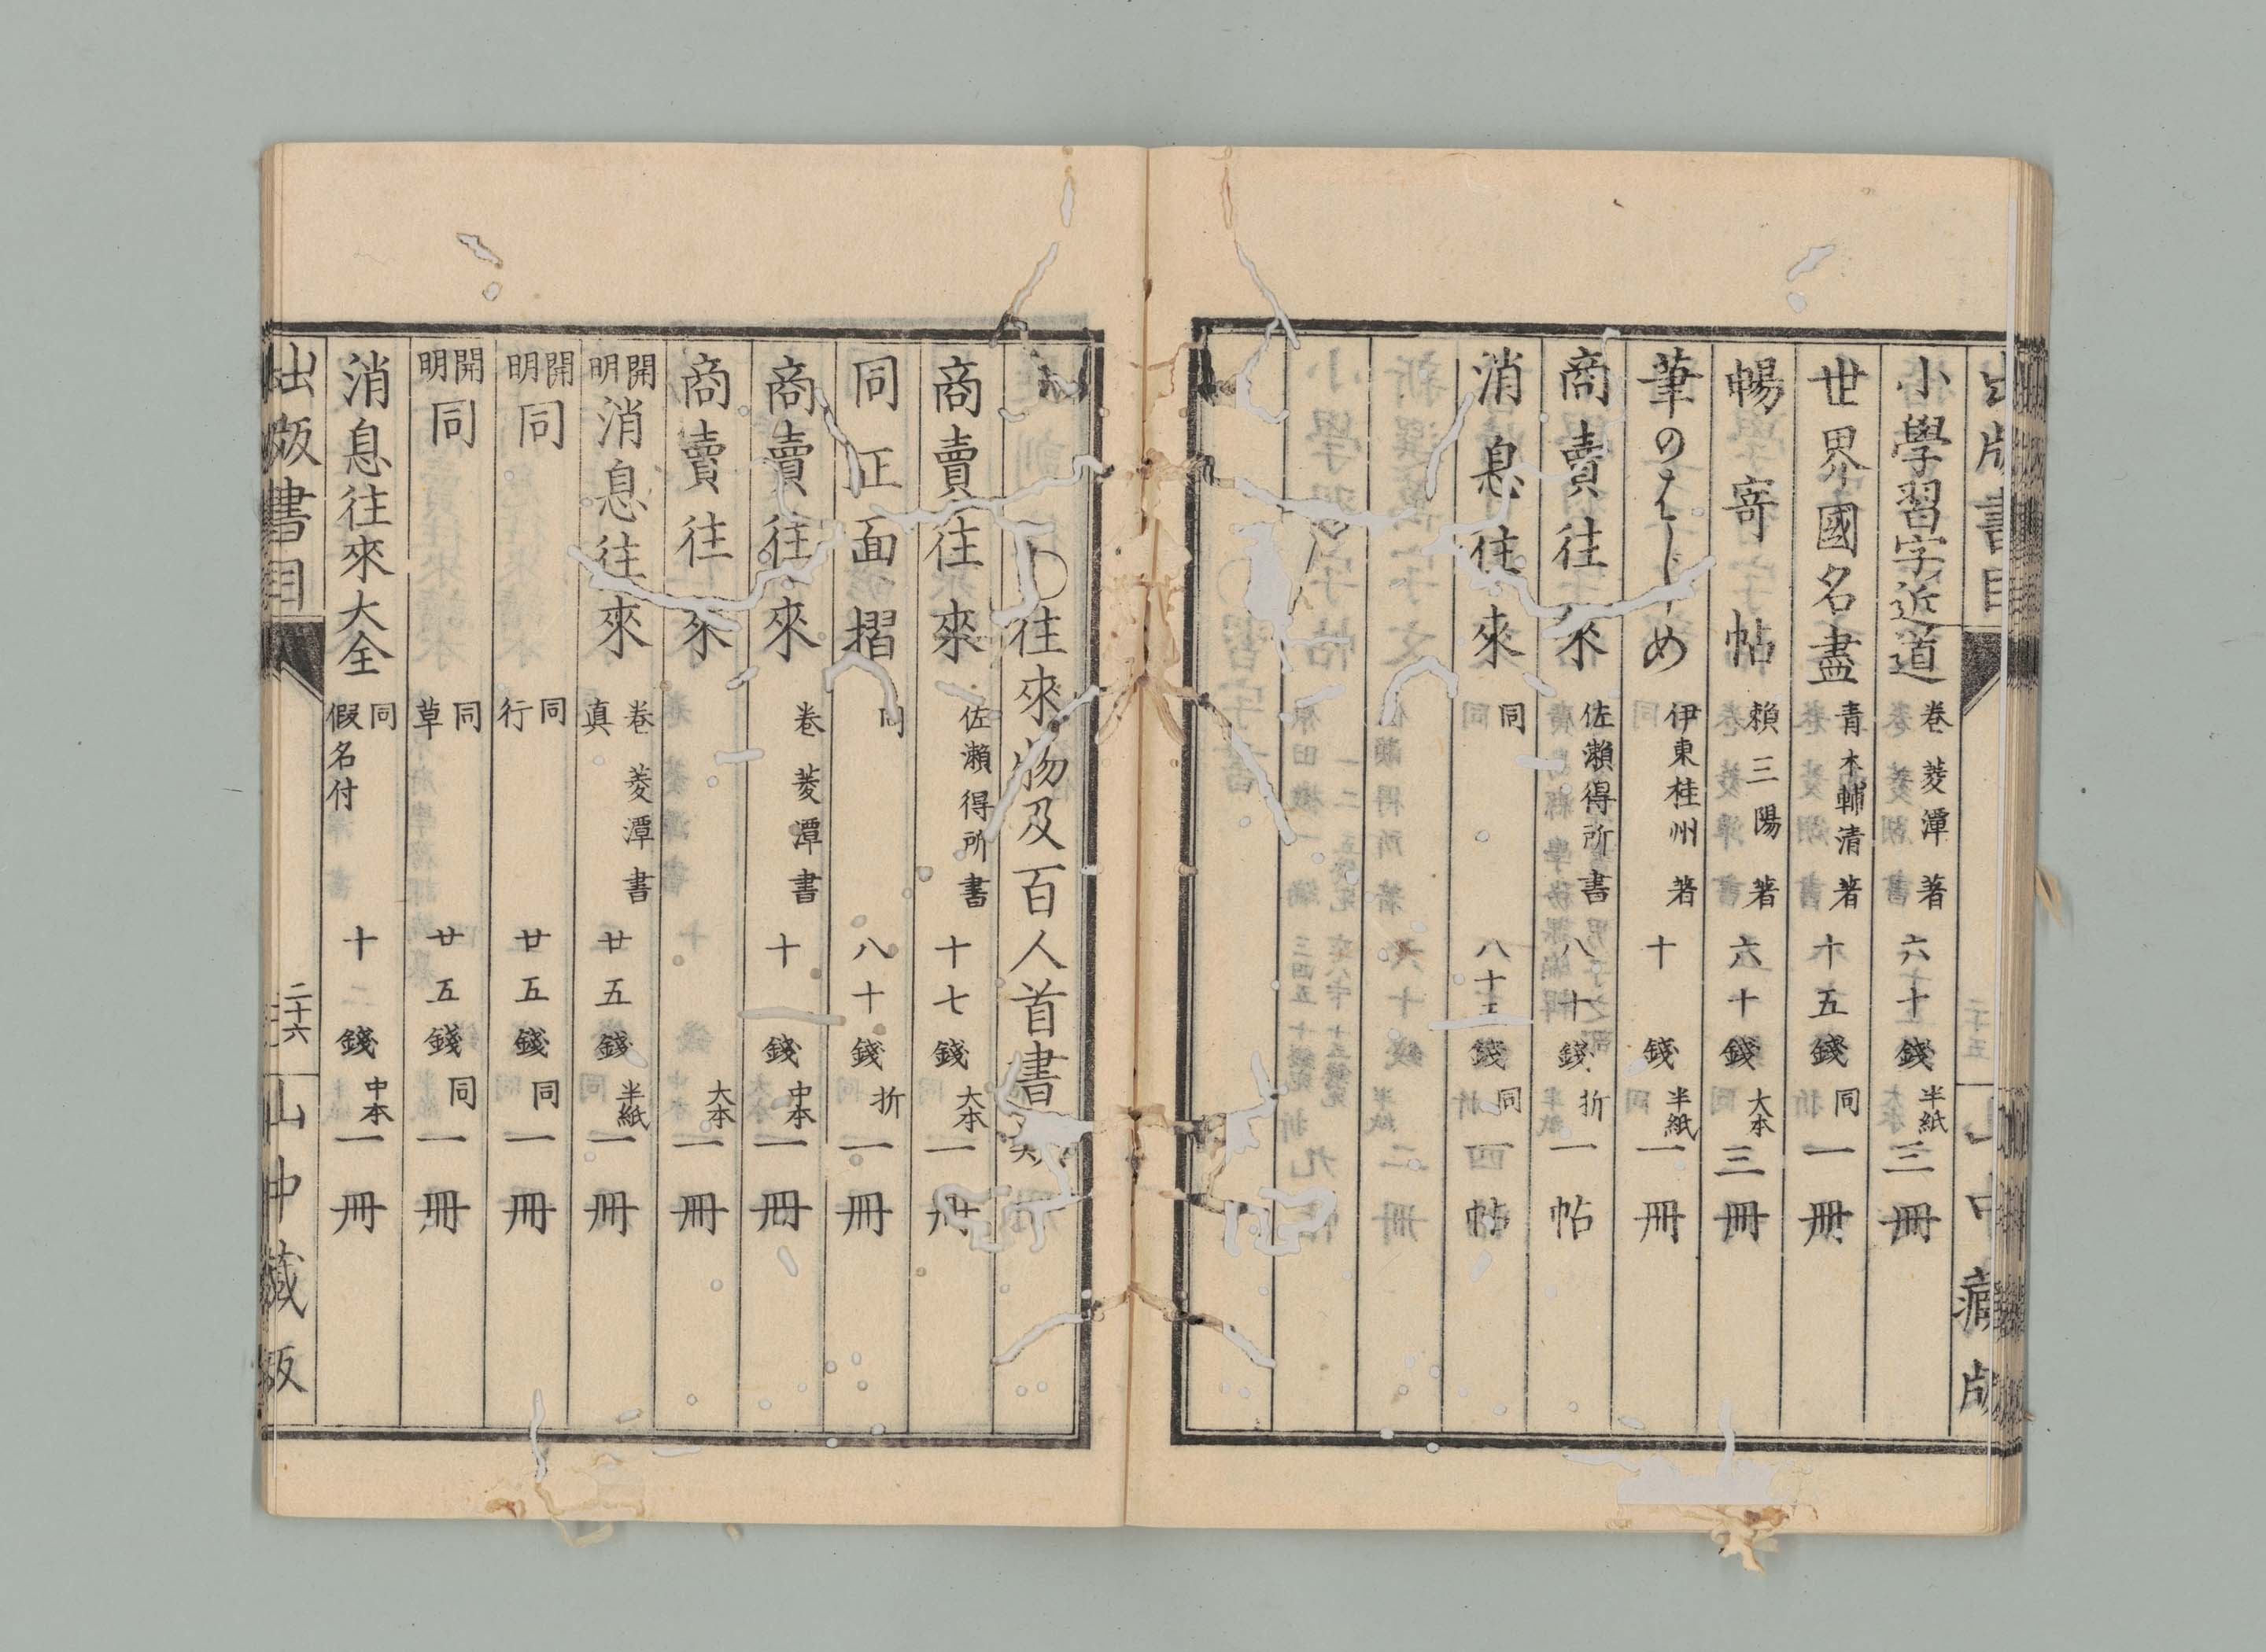 出版書目
山中藏版
小學習字近道 卷菱潭著 六十錢 半紙 三冊
世界國名盡 青木輔清著 十五錢 同 一冊
暢寄帖 賴三陽著 六十錢 大本 三冊
筆のはじめ 伊東桂州著 十錢 半紙 一冊
商賣往來 佐瀬得所書 八十錢 折 一帖
消息往來 同 八十錢 同 帖
〇往來物及百人首書類
商賣往來 佐瀬得所書 十七錢 大本 一冊
同正面摺 同 八十錢 折 一冊
商賣往來 卷菱潭書 十錢 中本 一冊
商賣往來 大本 一冊
開明消息往來 卷菱潭書 真 廿五錢 半紙 一冊
開明同 同行 廿五錢 同 一冊
開明同 同草 廿五錢 同 一冊
消息往來大全 同假名付 十二錢 中本 一冊
出版書目
二十六
山中藏版